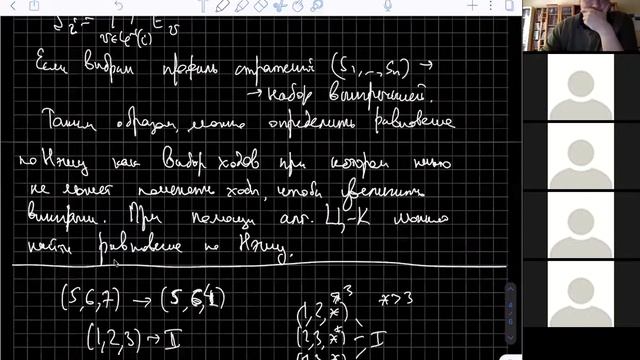 S_i = ∏ E_v
v∈φ⁻¹(i)
Если выбрали профиль стратегий (S₁,…,Sₙ) →
→ набор выигрышей.
Таким образом, можно определить равновесие
по Нэшу как выбор ходов при котором никто
не может поменять ходы, чтобы увеличить
выигрыш. При помощи алг. Ц-К можно
найти равновесие по Нэшу.
(5,6,7) → (5,6,4)
*>3
(1,2,*)
(1,2,3) → II
(2,3,*) – II